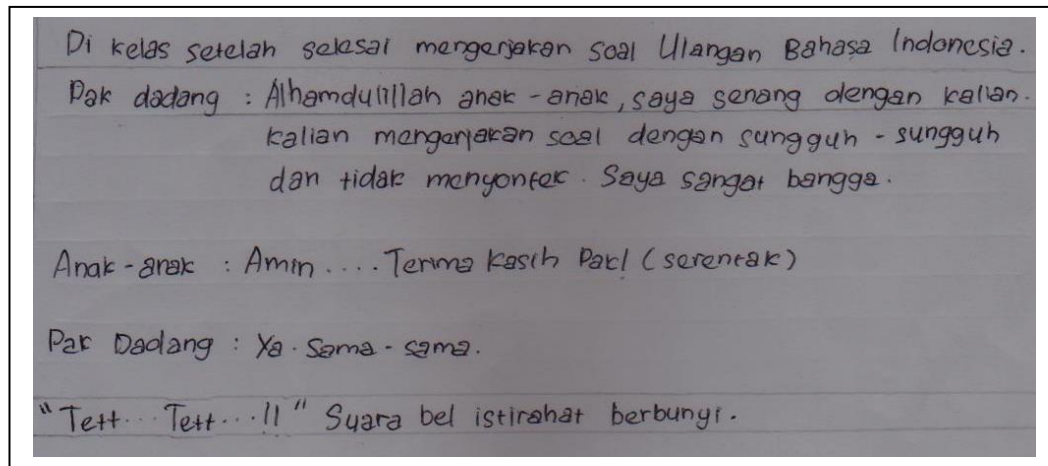 Di kelas setelah selesai mengerjakan soal Ulangan Bahasa Indonesia.
Pak dadang : Alhamdulillah anak-anak, saya senang dengan kalian.
kalian mengerjakan soal dengan sungguh-sungguh
dan tidak menyontek. Saya sangat bangga.
Anak-anak : Amin .... Terima Kasih Pak! (serentak)
Pak Dadang : Ya. Sama-sama.
"Tett... Tett...!!" Suara bel istirahat berbunyi.